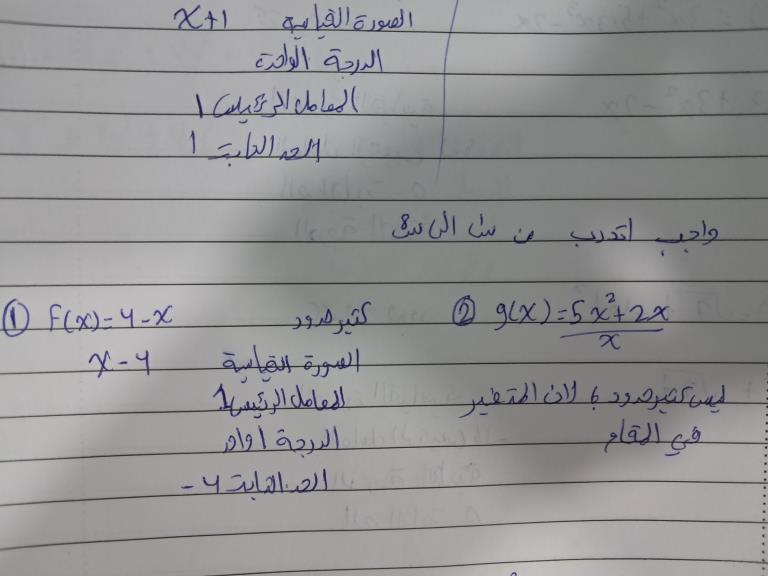 الصورة القياسية x+1
الدرجة الواحدة
المعامل الرئيسي 1
الحد الثابت 1
واجب اتدرب من س1 الى س8
① f(x)=4-x كثير حدود
x-4 الصورة القياسية
المعامل الرئيسي 1
الدرجة اولى
الحد الثابت 4-
② g(x)=5x²+2x/x
ليس كثير حدود، لان المتغير
في المقام